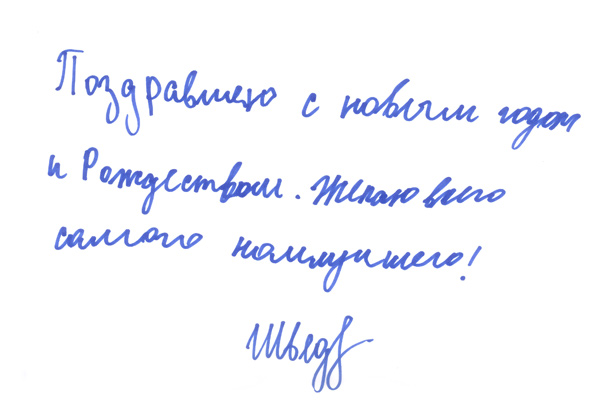 Поздравляю с новым годом
и Рождеством. Желаю всего
самого наилучшего!